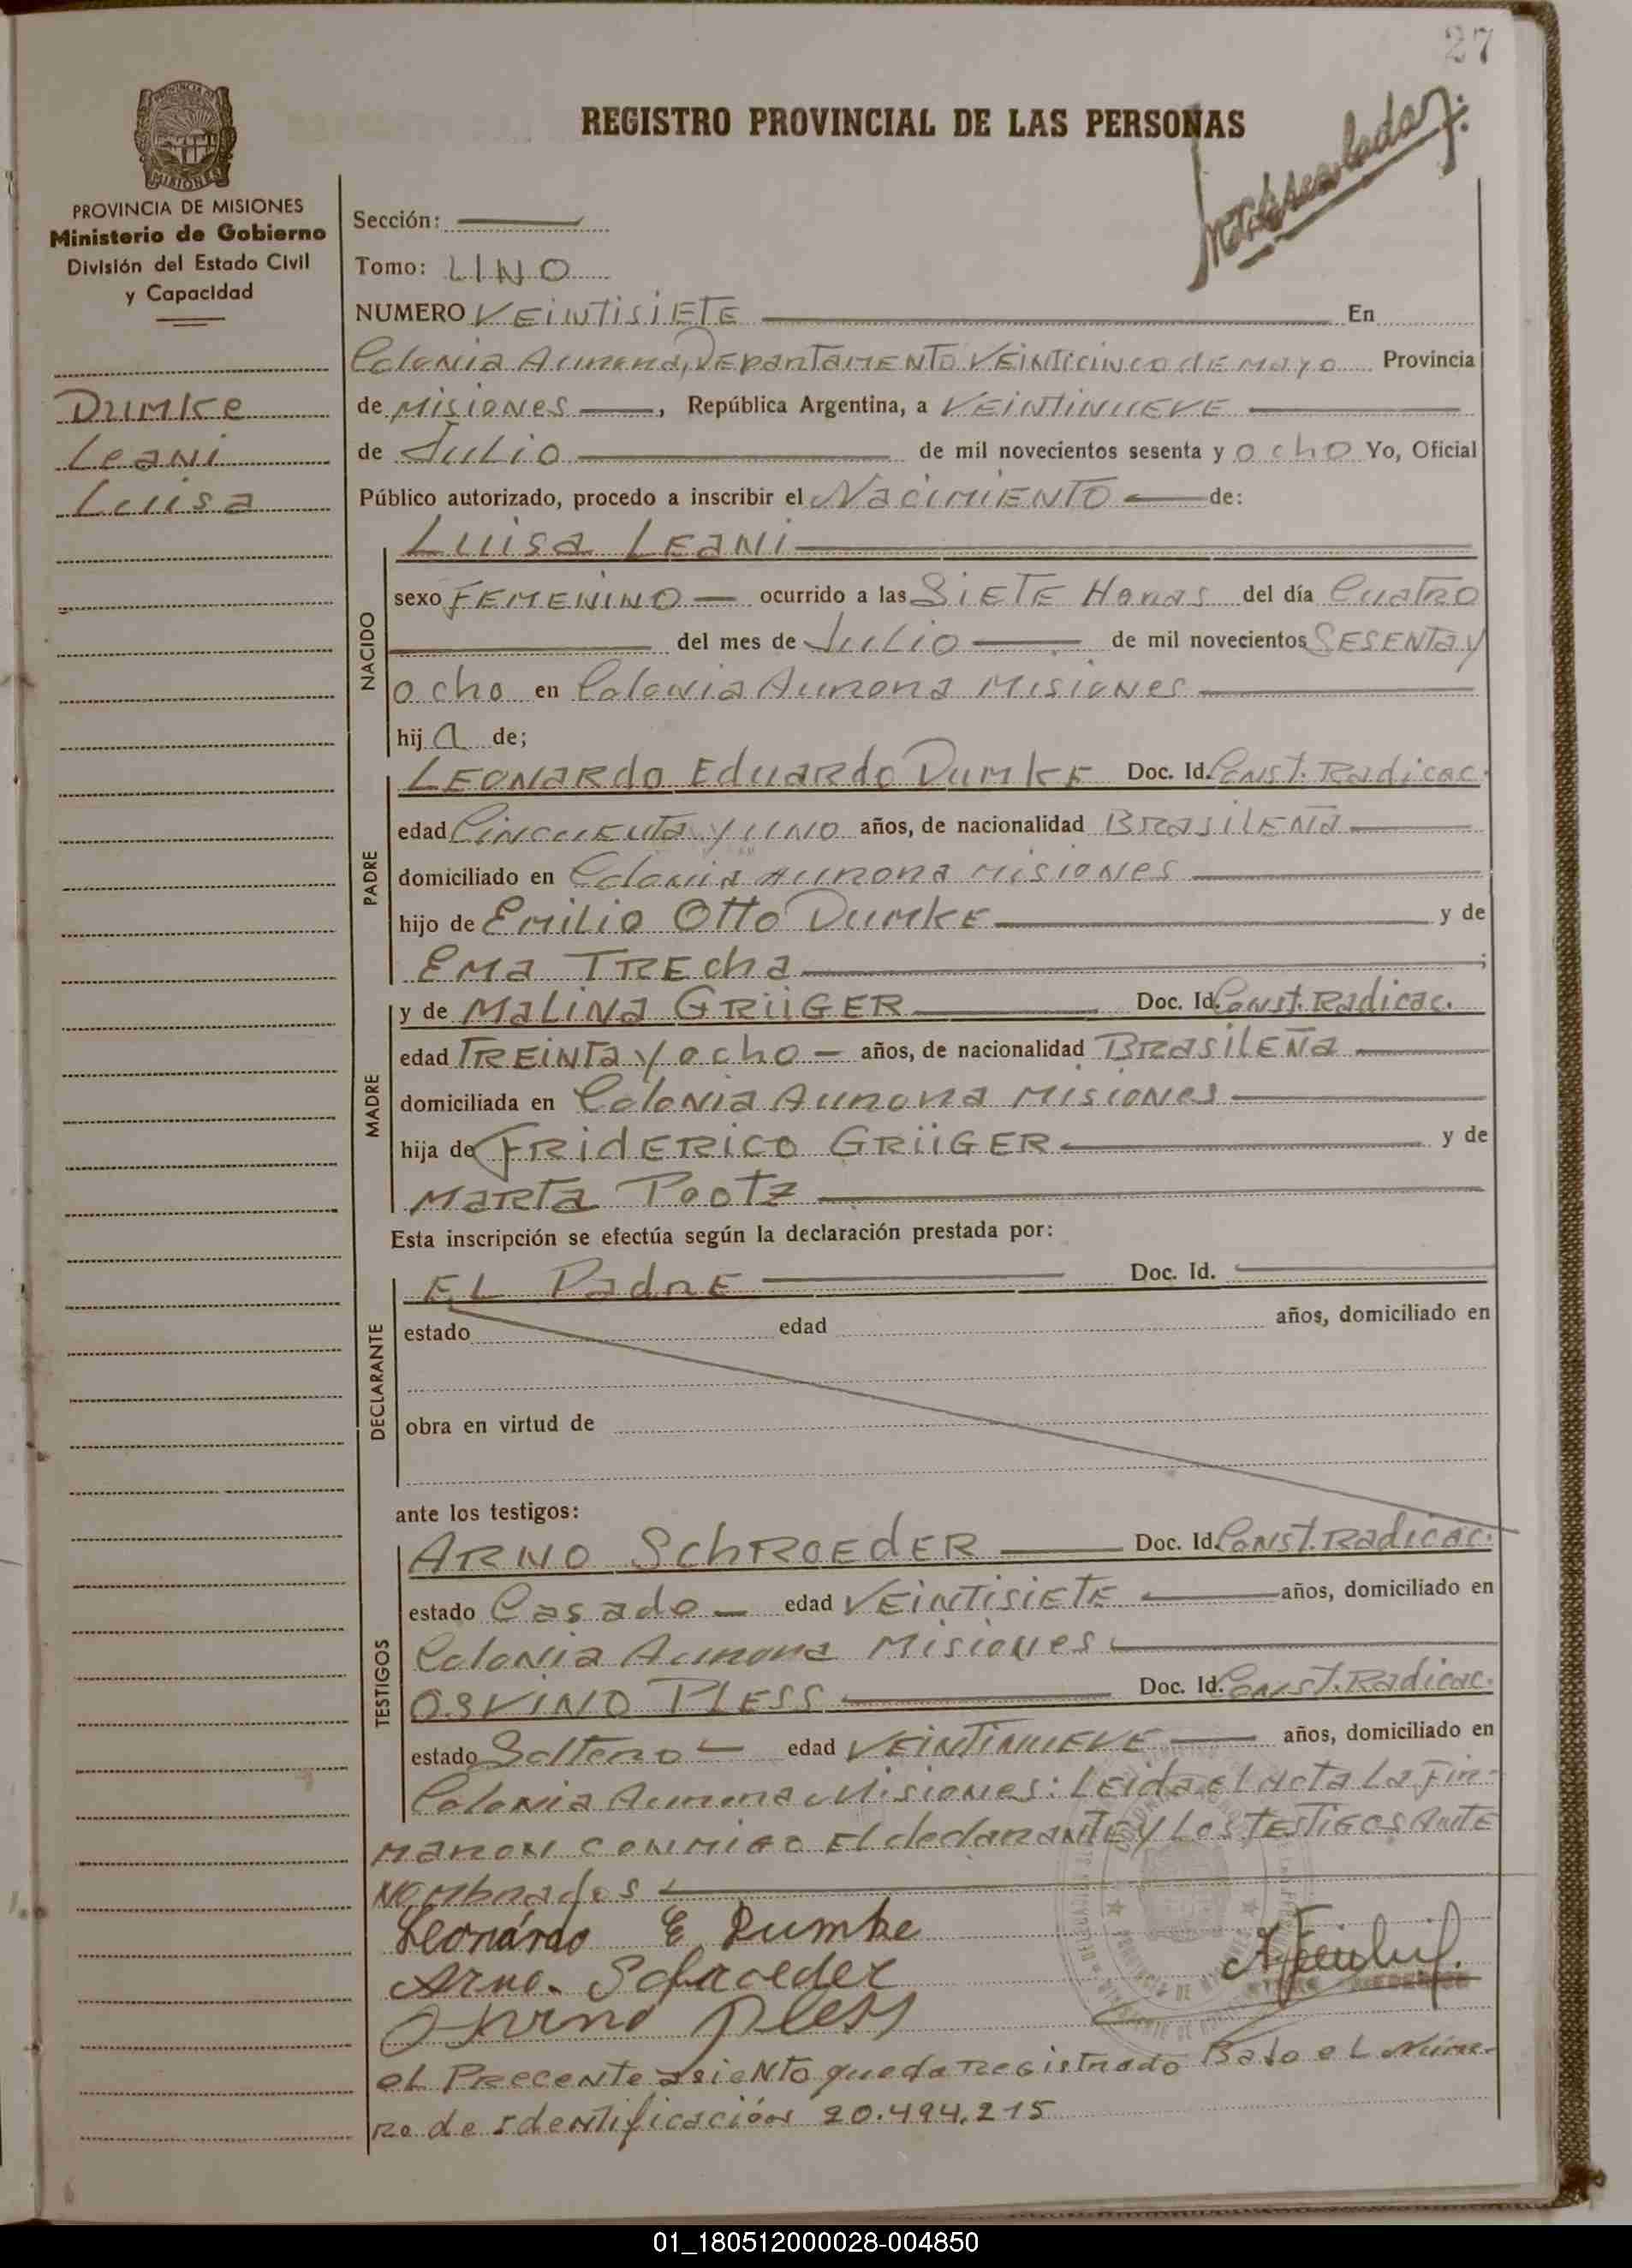 27
REGISTRO PROVINCIAL DE LAS PERSONAS
PROVINCIA DE MISIONES
Ministerio de Gobierno
División del Estado Civil
y Capacidad
Dumke
Leani
Luisa
Sección:
Tomo: UNO
NUMERO VEINTISIETE En
Colonia Aurora, Departamento Veinticinco de Mayo Provincia
de Misiones, República Argentina, a VEINTINUEVE
de Julio de mil novecientos sesenta y ocho Yo, Oficial
Público autorizado, procedo a inscribir el Nacimiento de:
Luisa Leani
NACIDO
sexo FEMENINO ocurrido a las Siete Horas del día Cuatro
del mes de Julio de mil novecientos SESENTA y
ocho en Colonia Aurora Misiones
hija de;
PADRE
LEONARDO EDUARDO DUMKE Doc. Id. Const. Radicac.
edad Cincuenta y uno años, de nacionalidad Brasileña
domiciliado en Colonia Aurora Misiones
hijo de Emilio Otto Dumke y de
Ema Trecha ;
MADRE
y de Malina GRÜGER Doc. Id. Const. Radicac.
edad Treinta y ocho años, de nacionalidad Brasileña
domiciliada en Colonia Aurora Misiones
hija de FRIDERICO GRÜGER y de
Marta Pootz
Esta inscripción se efectúa según la declaración prestada por:
DECLARANTE
El Padre Doc. Id.
estado edad años, domiciliado en
obra en virtud de
ante los testigos:
TESTIGOS
ARNO SCHROEDER Doc. Id. Const. Radicac.
estado Casado edad VEINTISIETE años, domiciliado en
Colonia Aurora Misiones
OSVINO PLESS Doc. Id. Const. Radicac.
estado Soltero edad VEINTINUEVE años, domiciliado en
Colonia Aurora Misiones: Leida el Acta La Fir-
maron conmigo El declarante y Los Testigos Ante
Nombrados
Leonárdo E Dumke
Arno. Schroeder
Pless
el Precente asiento queda registrado Bajo el Núme-
ro de identificación 20.494.215
01_180512000028-004850